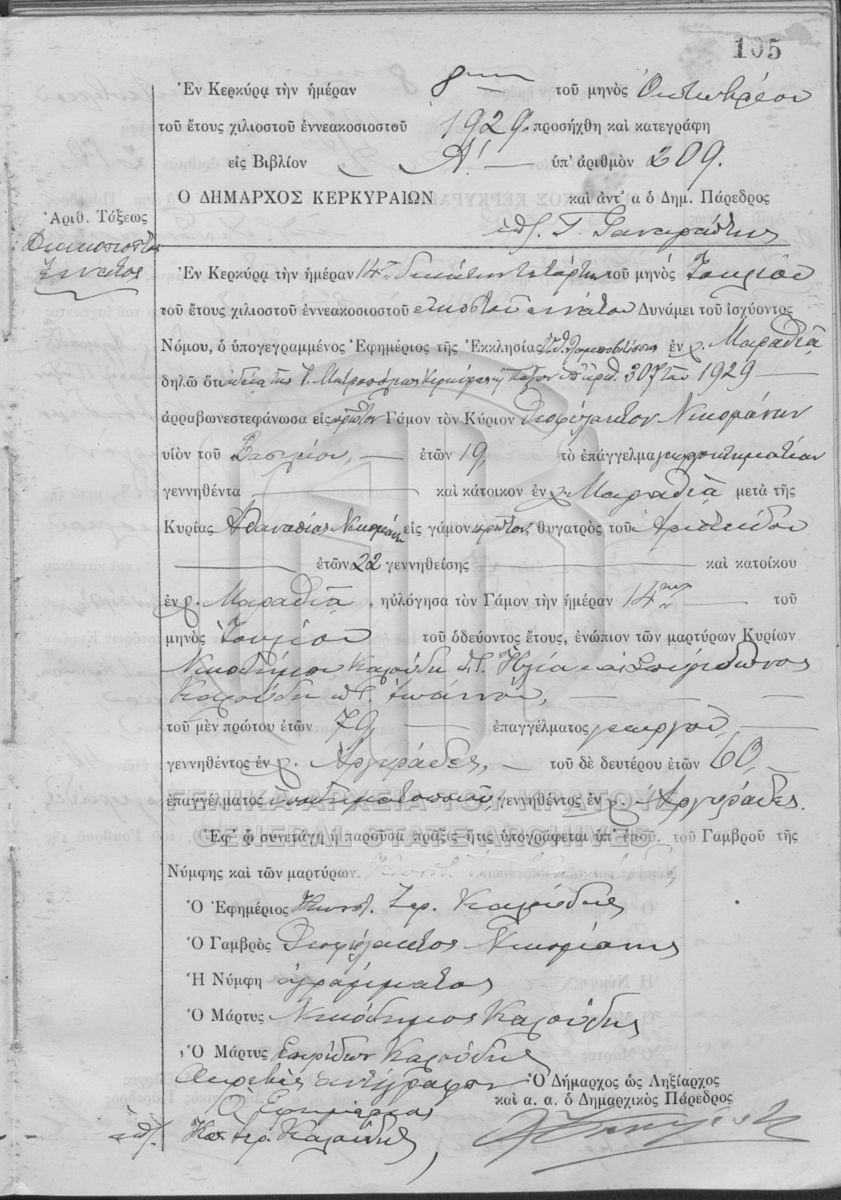 105
Ἐν Κερκύρᾳ τὴν ἡμέραν 8ην τοῦ μηνὸς Ὀκτωβρίου
τοῦ ἔτους χιλιοστοῦ ἐννεακοσιοστοῦ 1929 προσήχθη καὶ κατεγράφη
εἰς Βιβλίον Α! ὑπ' ἀριθμὸν 209.
Ο ΔΗΜΑΡΧΟΣ ΚΕΡΚΥΡΑΙΩΝ καὶ ἀντ' α ὁ Δημ. Πάρεδρος
Ἀριθ. Τάξεως
Ἐν Κερκύρᾳ τὴν ἡμέραν 14ην δεκάτην τετάρτην τοῦ μηνὸς Ἰουλίου
τοῦ ἔτους χιλιοστοῦ ἐννεακοσιοστοῦ εἰκοστοῦ ἐννάτου Δυνάμει τοῦ ἰσχύοντος
Νόμου, ὁ ὑπογεγραμμένος Ἐφημέριος τῆς Ἐκκλησίας ἐν χ. Μαραθιᾷ
δηλῶ ὅτι ἀδείᾳ τῆς Ἱ. Μητροπόλεως Κερκύρας ὑπ' ἀριθ. 307 τοῦ 1929
ἀρραβωνεστεφάνωσα εἰς πρῶτον Γάμον τὸν Κύριον Θεοφύλακτον Νικομάνην
υἱὸν τοῦ Βασιλείου, ἐτῶν 19, τὸ ἐπάγγελμα γεωκτηματίαν
γεννηθέντα καὶ κάτοικον ἐν χ. Μαραθιᾷ μετὰ τῆς
Κυρίας Ἀθανασίας Νικομάνη εἰς γάμον πρῶτον, θυγατρὸς τοῦ Ἀριστείδου
ἐτῶν 22 γεννηθείσης καὶ κατοίκου
ἐν χ. Μαραθιᾷ, ηὐλόγησα τὸν Γάμον τὴν ἡμέραν 14ην τοῦ
μηνὸς Ἰουλίου τοῦ ὁδεύοντος ἔτους, ἐνώπιον τῶν μαρτύρων Κυρίων
Νικοδήμου Καλούδη π. Ἠλία καὶ Σπυρίδωνος
Καλούδη π. Ἰωάννου,
τοῦ μὲν πρώτου ἐτῶν 79 ἐπαγγέλματος γεωργοῦ,
γεννηθέντος ἐν χ. Ἀργυράδες, τοῦ δὲ δευτέρου ἐτῶν 60,
ἐπαγγέλματος ὑποδηματοποιοῦ, γεννηθέντος ἐν χ. Ἀργυράδες.
ΓΕΝΙΚΑ ΑΡΧΕΙΑ ΤΟΥ ΚΡΑΤΟΥΣ
GENERAL STATE ARCHIVES
Ἐφ' ᾧ συνετάγη ἡ παροῦσα πρᾶξις ἥτις ὑπογράφεται ὑπ' ἐμοῦ, τοῦ Γαμβροῦ τῆς
Νύμφης καὶ τῶν μαρτύρων.
Ὁ Ἐφημέριος Κωνστ. Ἱερ. Καλούδης
Ὁ Γαμβρὸς Θεοφύλακτος Νικομάνης
Ἡ Νύμφη ἀγράμματος
Ὁ Μάρτυς Νικόδημος Καλούδης
Ὁ Μάρτυς Σπυρίδων Καλούδης
Ἀκριβὲς ἀντίγραφον
Ὁ Ἐφημέριος
Κων. Ἱερ. Καλούδης
Ὁ Δήμαρχος ὡς Ληξίαρχος
καὶ α. α. ὁ Δημαρχικὸς Πάρεδρος